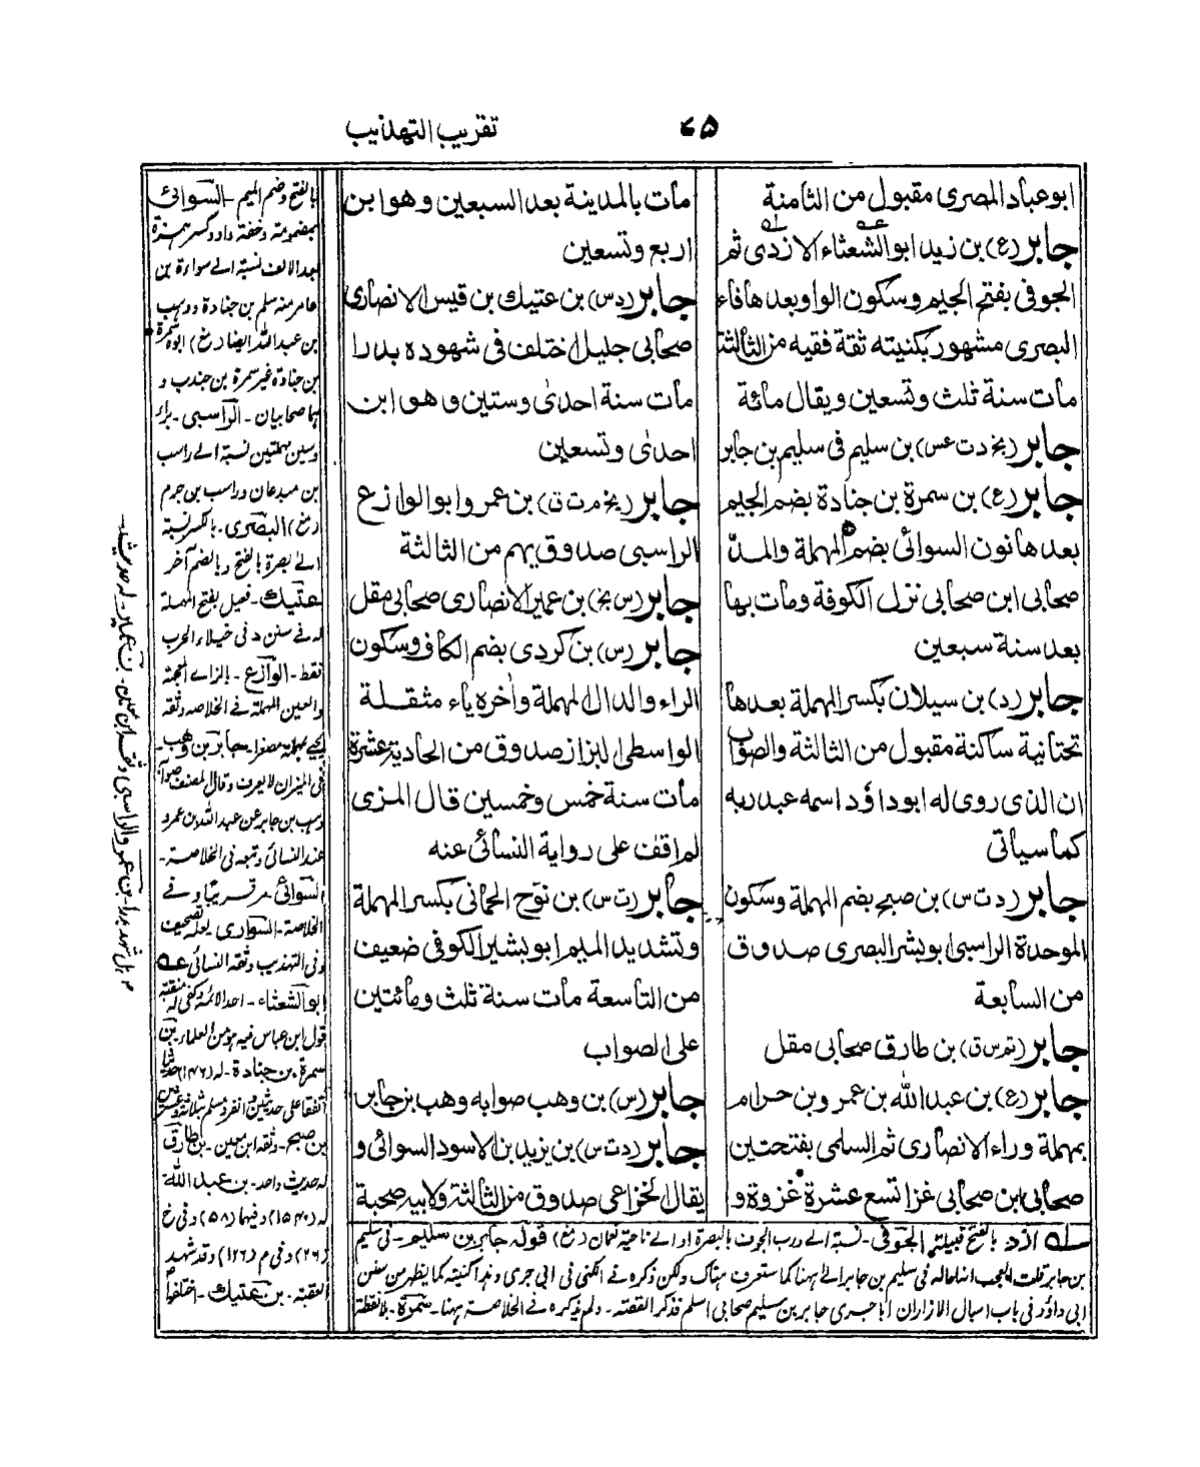 تقریب التهذیب
٧٥
ابو عباد المصری مقبول من الثامنة
جابر (ع) بن زید ابو الشعثاء الازدی ثم
الجوفی بفتح الجیم وسکون الواو بعدها فاء
البصری مشهور بکنیته ثقة فقیه من الثالثة
مات سنة ثلث وتسعین ویقال مائة
جابر (بخ د ت عس) بن سلیم فی سلیم بن جابر
جابر (ع) بن سمرة بن جنادة بضم الجیم
بعدها نون السوائی بضم المهملة والمد
صحابی ابن صحابی نزل الکوفة ومات بها
بعد سنة سبعین
جابر (د) بن سیلان بکسر المهملة بعدها
تحتانیة ساکنة مقبول من الثالثة والصواب
ان الذی روی له ابوداؤد اسمه عبد ربه
کما سیاتی
جابر (د ت س) بن صبح بضم المهملة وسکون
الموحدة الراسبی ابو بشر البصری صدوق
من السابعة
جابر (تم س ق) بن طارق صحابی مقل
جابر (ع) بن عبد الله بن عمرو بن حرام
بمهملة وراء الانصاری ثم السلمی بفتحتین
صحابی ابن صحابی غزا تسع عشرة غزوة و
مات بالمدینة بعد السبعین وهو ابن
اربع وتسعین
جابر (د س) بن عتیك بن قیس الانصاری
صحابی جلیل اختلف فی شهوده بدرا
مات سنة احدی وستین وهو ابن
احدی وتسعین
جابر (بخ م ت ق) بن عمرو ابو الوازع
الراسبی صدوق یهم من الثالثة
جابر (س بخ) بن عمیر الانصاری صحابی مقل
جابر (س) بن کردی بضم الکاف وسکون
الراء والدال المهملة وآخره یاء مثقلة
الواسطی البزاز صدوق من الحادیة عشرة
مات سنة خمس وخمسین قال المزی
لم اقف علی روایة النسائی عنه
جابر (ت س) بن نوح الحمانی بکسر المهملة
وتشدید المیم ابو بشیر الکوفی ضعیف
من التاسعة مات سنة ثلث ومائتین
علی الصواب
جابر (س) بن وهب صوابه وهب بن جابر
جابر (د ت س) بن یزید بن الاسود السوائی و
یقال الخزاعی صدوق من الثالثة ولابیه صحبة
بالفتح وضم المیم - السوائی
بمضمومة وخفة واو وکسر همزة
بعد الالف نسبة الے سواءة بن
عامر منه سلم بن جنادة ووهب
بن عبد الله ایضا (مغ) ابوه سمرة
بن جنادة غیر سمرة بن جندب و
هما صحابیان - الراسبی - براء
وسین مهملتین نسبة الے راسب
بن میدعان وراسب بن جرم
(مغ) البصری - بالکسر نسبة
الے بصرة بالفتح وبالضم آخر
عتیك - فعیل بفتح المهملة
له فے سنن د فی خیلاء الحرب
فقط - الوازع - بالزاے المعجمة
والعین المهملة فے الخلاصه وثقه
یحیے بهملة مصغرا - جابر بن وهب -
فی المیزان لا یعرف وقال المصنف صوابه
وهب بن جابر عن عبد الله بن عمرو
عند النسائی وتبعه فی الخلاصة -
السوائی مر قریبا و فے
الخلاصة - السواری لعله تصحیف
وفی التهذیب وثقه النسائی عه
ابو الشعثاء - احد الائمة وکفی له منقبة
قول ابن عباس فیه هو من العلماء - بن
سمرة بن جنادة - له (١٤٦) حدیثا
اتفقا علی حدیثین وانفرد مسلم بثلاثة وعشرین
بن صبح - وثقه ابن معین - بن طارق
له حدیث واحد - بن عبد الله
له (١٥٤٠) وفیها (٥٨) وفی خ
(٢٦) وفی م (١٢٦) وقد شهد
العقبة - بن عتیك - اختلفوا
هل شهد بدرا - بن عمرو الراسبی وثقه ابن معین - بن عمیر - له حدیث -
سله ازد بالفتح قبیلة الجوفی - نسبة الے درب الجوف بالبصرة او الے ناحیة لعمان (مغ) قوله جابر بن سلیم - فی سلیم
بن جابر قلت العجب انه احاله فی سلیم بن جابر الے ههنا کما ستعرف هناک ولکن ذکره فے الکنی فی ابی جری وهذا کنیته کما یظهر من سنن
ابی داؤد فی باب اسبال الازار ان ابا جری جابر بن سلیم صحابی اسلم فذکر القصة - ولم یذکره فے الخلاصة ههنا - سمرة - بلا نقطة